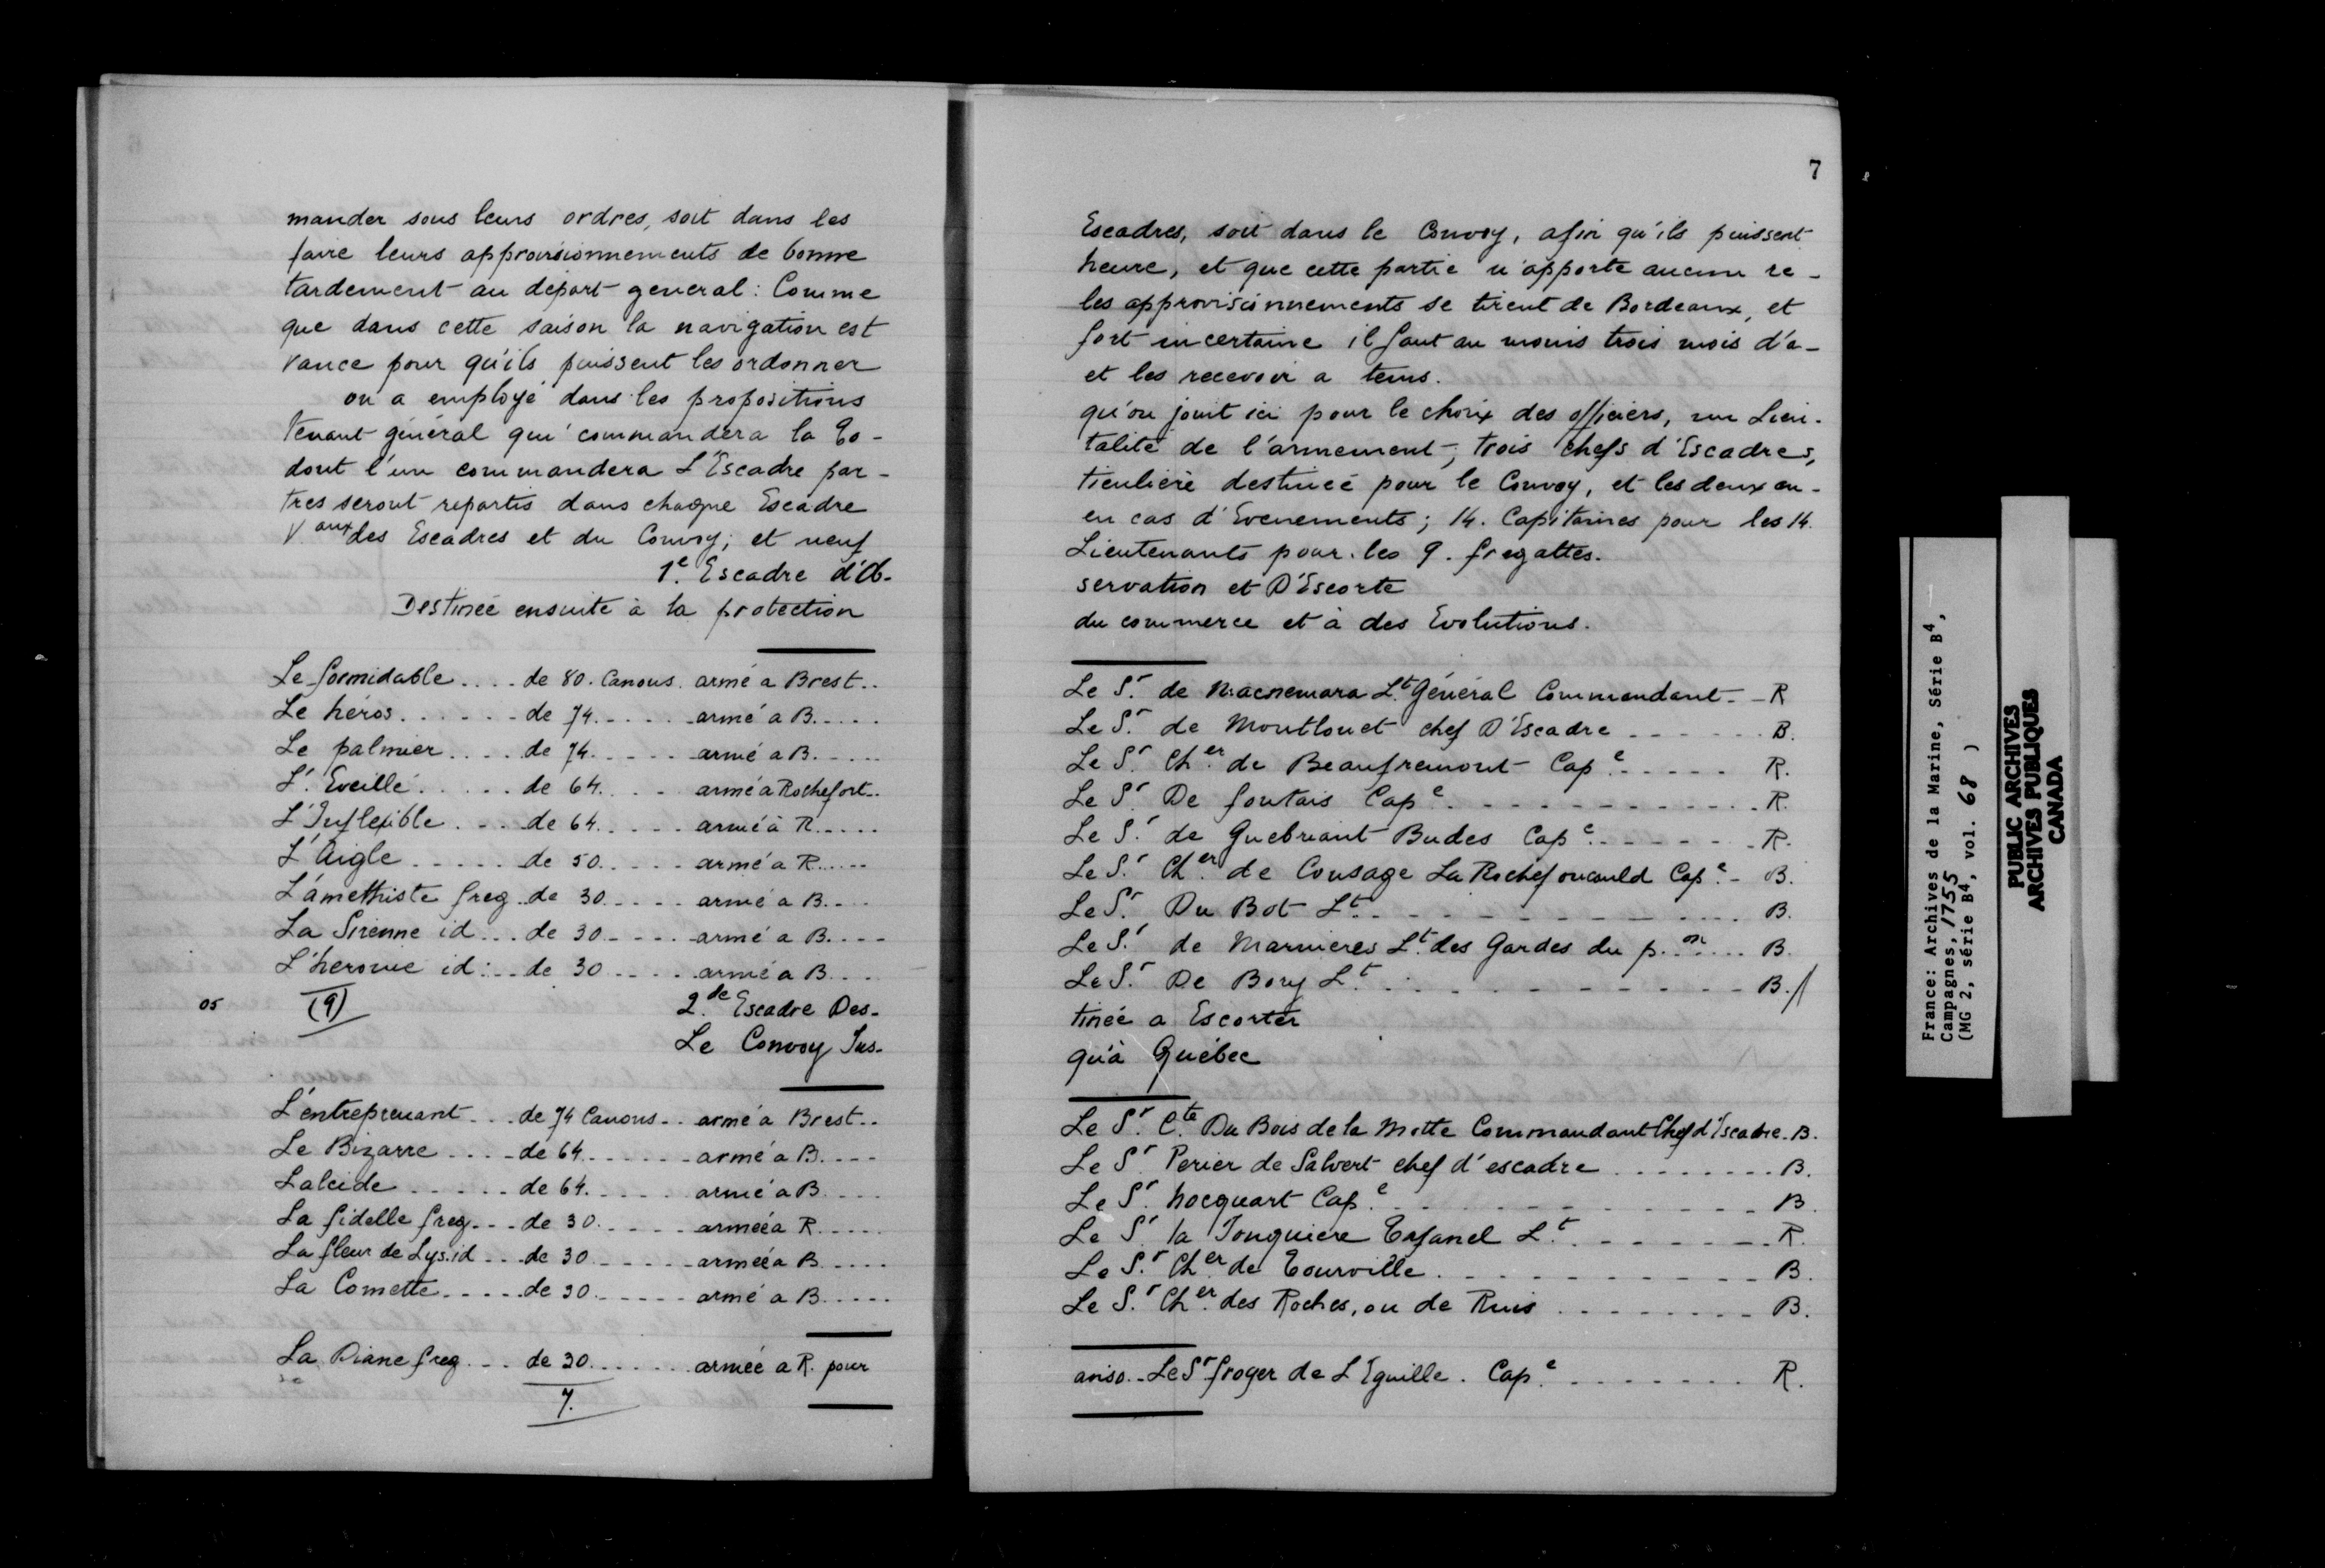 7
mander sous leurs ordres, soit dans les Escadres, soit dans le Convoy, afin qu'ils puissent
faire leurs approvisionnements de bonne heure, et que cette partie n'apporte aucun re-
tardement au départ general: Comme les approvisionnements se tirent de Bordeaux, et
que dans cette saison la navigation est fort incertaine il faut au moins trois mois d'a-
vance pour qu'ils puissent les ordonner et les recevoir a tems.
on a employé dans les propositions qu'on joint ici pour le choix des officiers, un Lieu-
tenant général qui commandera la to- talité de l'armement; trois chefs d'Escadres,
dont l'un commandera L'Escadre par- ticulière destinée pour le Convoy, et les deux au-
tres seront repartis dans chaque Escadre en cas d'Evenements; 14. Capitaines pour les 14.
V.aux des Escadres et du Convoy; et neuf Lieutenants pour les 9. fregattes.
1e. Escadre d'Ob- servation et D'Escorte
Destinée ensuite à la protection du commerce et à des Evolutions.
Le formidable .... de 80. Canons. armé a Brest.. Le Sr. de Macnemara Lt. Général Commandant - R
Le héros ...... de 74. ..... armé a B. .... Le Sr. de Montlouet chef D'Escadre ...... B.
Le palmier .... de 74. ..... armé a B. .... Le Sr. Cher. de Beaufremont Cape. ..... R.
L'Eveillé ..... de 64. .... armé a Rochefort.. Le Sr. De fontais Cape. .......... R.
L'Inflexible .... de 64. ..... armé à R. .... Le Sr. de Guebriant Budes Cape. ...... R.
L'Aigle ..... de 50. .... armé a R. .... Le Sr. Cher. de Cousage La Rochefoucauld Cape. - B.
L'améthiste freg. de 30. .... armé a B. ... Le Sr. Du Bot Lt. .......... B.
La Sirenne id... de 30. .... armé a B. .... Le Sr. de Marnieres Lt. des Gardes du p.on ... B.
L'heroine id: .. de 30 .... armé a B. ... Le Sr. De Bory Lt. .......... B.
05 (9) 2.de Escadre Des- tinée a Escorter
Le Convoy Jus- qu'à Québec
L'entreprenant ... de 74 Canons .. armé a Brest.. Le Sr. Cte. Du Bois de la Motte Commandant Chef d'Escadre. B.
Le Bizarre .... de 64. ...... armé a B. .... Le Sr. Perier de Salvert chef d'escadre ........ B.
Lalcide ..... de 64. ..... armé a B. .... Le Sr. hocquart Cape. .......... B.
La fidelle freg. ... de 30. ..... armée a R. .... Le Sr. la Jonquiere Tafanel Lt. ....... R.
La fleur de Lys. id ... de 30. ..... armée a B. .... Le Sr. Cher. de Tourville .......... B.
La Comette ..... de 30. ..... armé a B. .... Le Sr. Cher. des Roches, ou de Ruis ........ B.
La Diane freg. ... de 30. ...... armée a R. pour aviso .. Le Sr froger de L'Eguille. Cape. ....... R.
7.
France: Archives de la Marine, Série B4,
Campagnes, 1755
(MG 2, série B4, vol. 68 )
PUBLIC ARCHIVES
ARCHIVES PUBLIQUES
CANADA